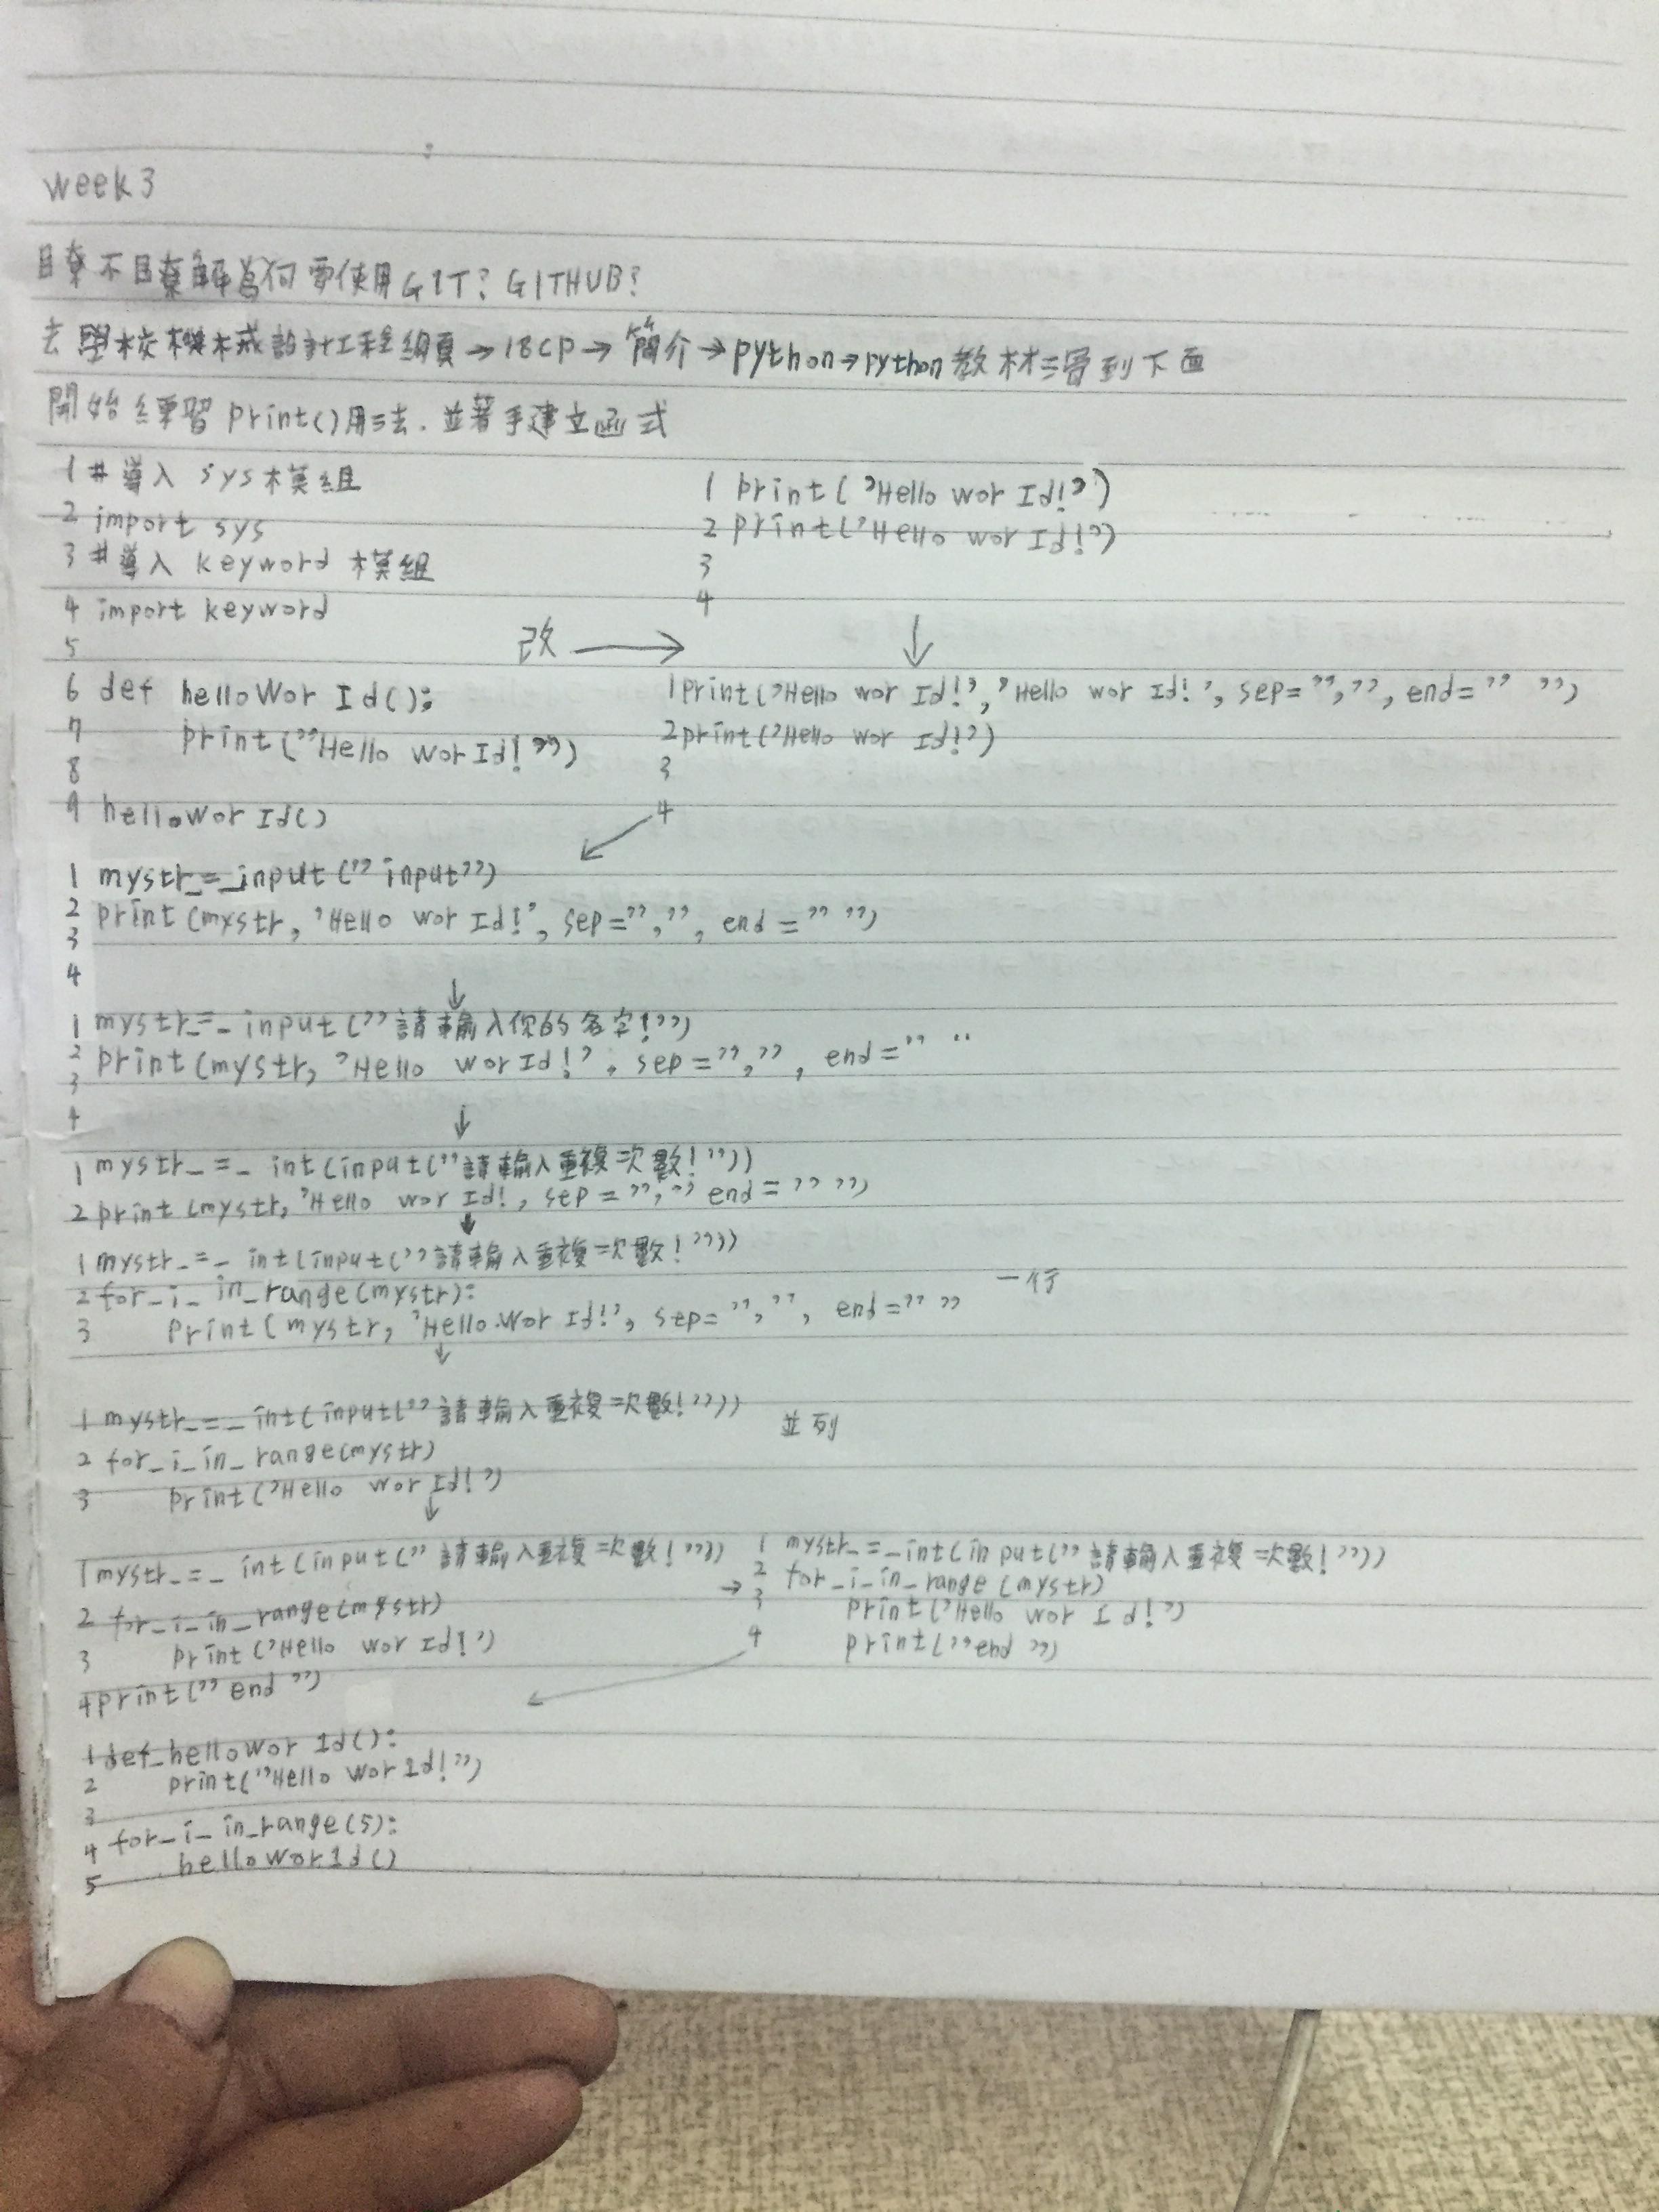 week3
瞭不瞭解為何要使用GIT? GITHUB?
去學校機械設計工程網頁→1BCP→簡介→python→python教材滑到下面
開始練習print()用法.並著手建立函式
1 #導入 sys模組
2 import sys
3 #導入 keyword 模組
4 import keyword
5
6 def helloWorId():
7 print(”Hello worId!”)
8
9 helloworId()
改 →
1 print(’Hello worId!’)
2 print(’Hello worId!’)
3
4
↓
1 print(’Hello worId!’,’Hello worId!’, sep=”,”, end=” ”)
2 print(’Hello worId!’)
3
4
1 mystr_=_input(”input”)
2 print(mystr, ’Hello worId!’, sep=”,”, end=” ”)
3
4
↓
1 mystr_=_input(”請輸入你的名字!”)
2 print(mystr, ’Hello worId!’, sep=”,”, end=” ”
3
4
↓
1 mystr_=_ int(input(”請輸入重複次數!”))
2 print(mystr, ’Hello worId!, sep=”,” end=” ”)
↓
1 mystr_=_ int(input(”請輸入重複次數!”))
2 for_i_in_range(mystr):
一行
3 print(mystr, ’Hello.WorId!’, sep=”,”, end=” ”
↓
1 mystr_=_int(input(”請輸入重複次數!”))
並列
2 for_i_in_range(mystr)
3 print(’Hello worId!’)
↓
1 mystr_=_ int(input(”請輸入重複次數!”))
2 for_i_in_range(mystr)
3 print(’Hello worId!’)
4 print(”end”)
→
1 mystr_=_int(input(”請輸入重複次數!”))
2 for_i_in_range(mystr)
3 print(’Hello worId!’)
4 print(”end”)
1 def_helloWor1d():
2 print(”Hello Wor1d!”)
3
4 for_i_in_range(5):
5 helloWor1d()